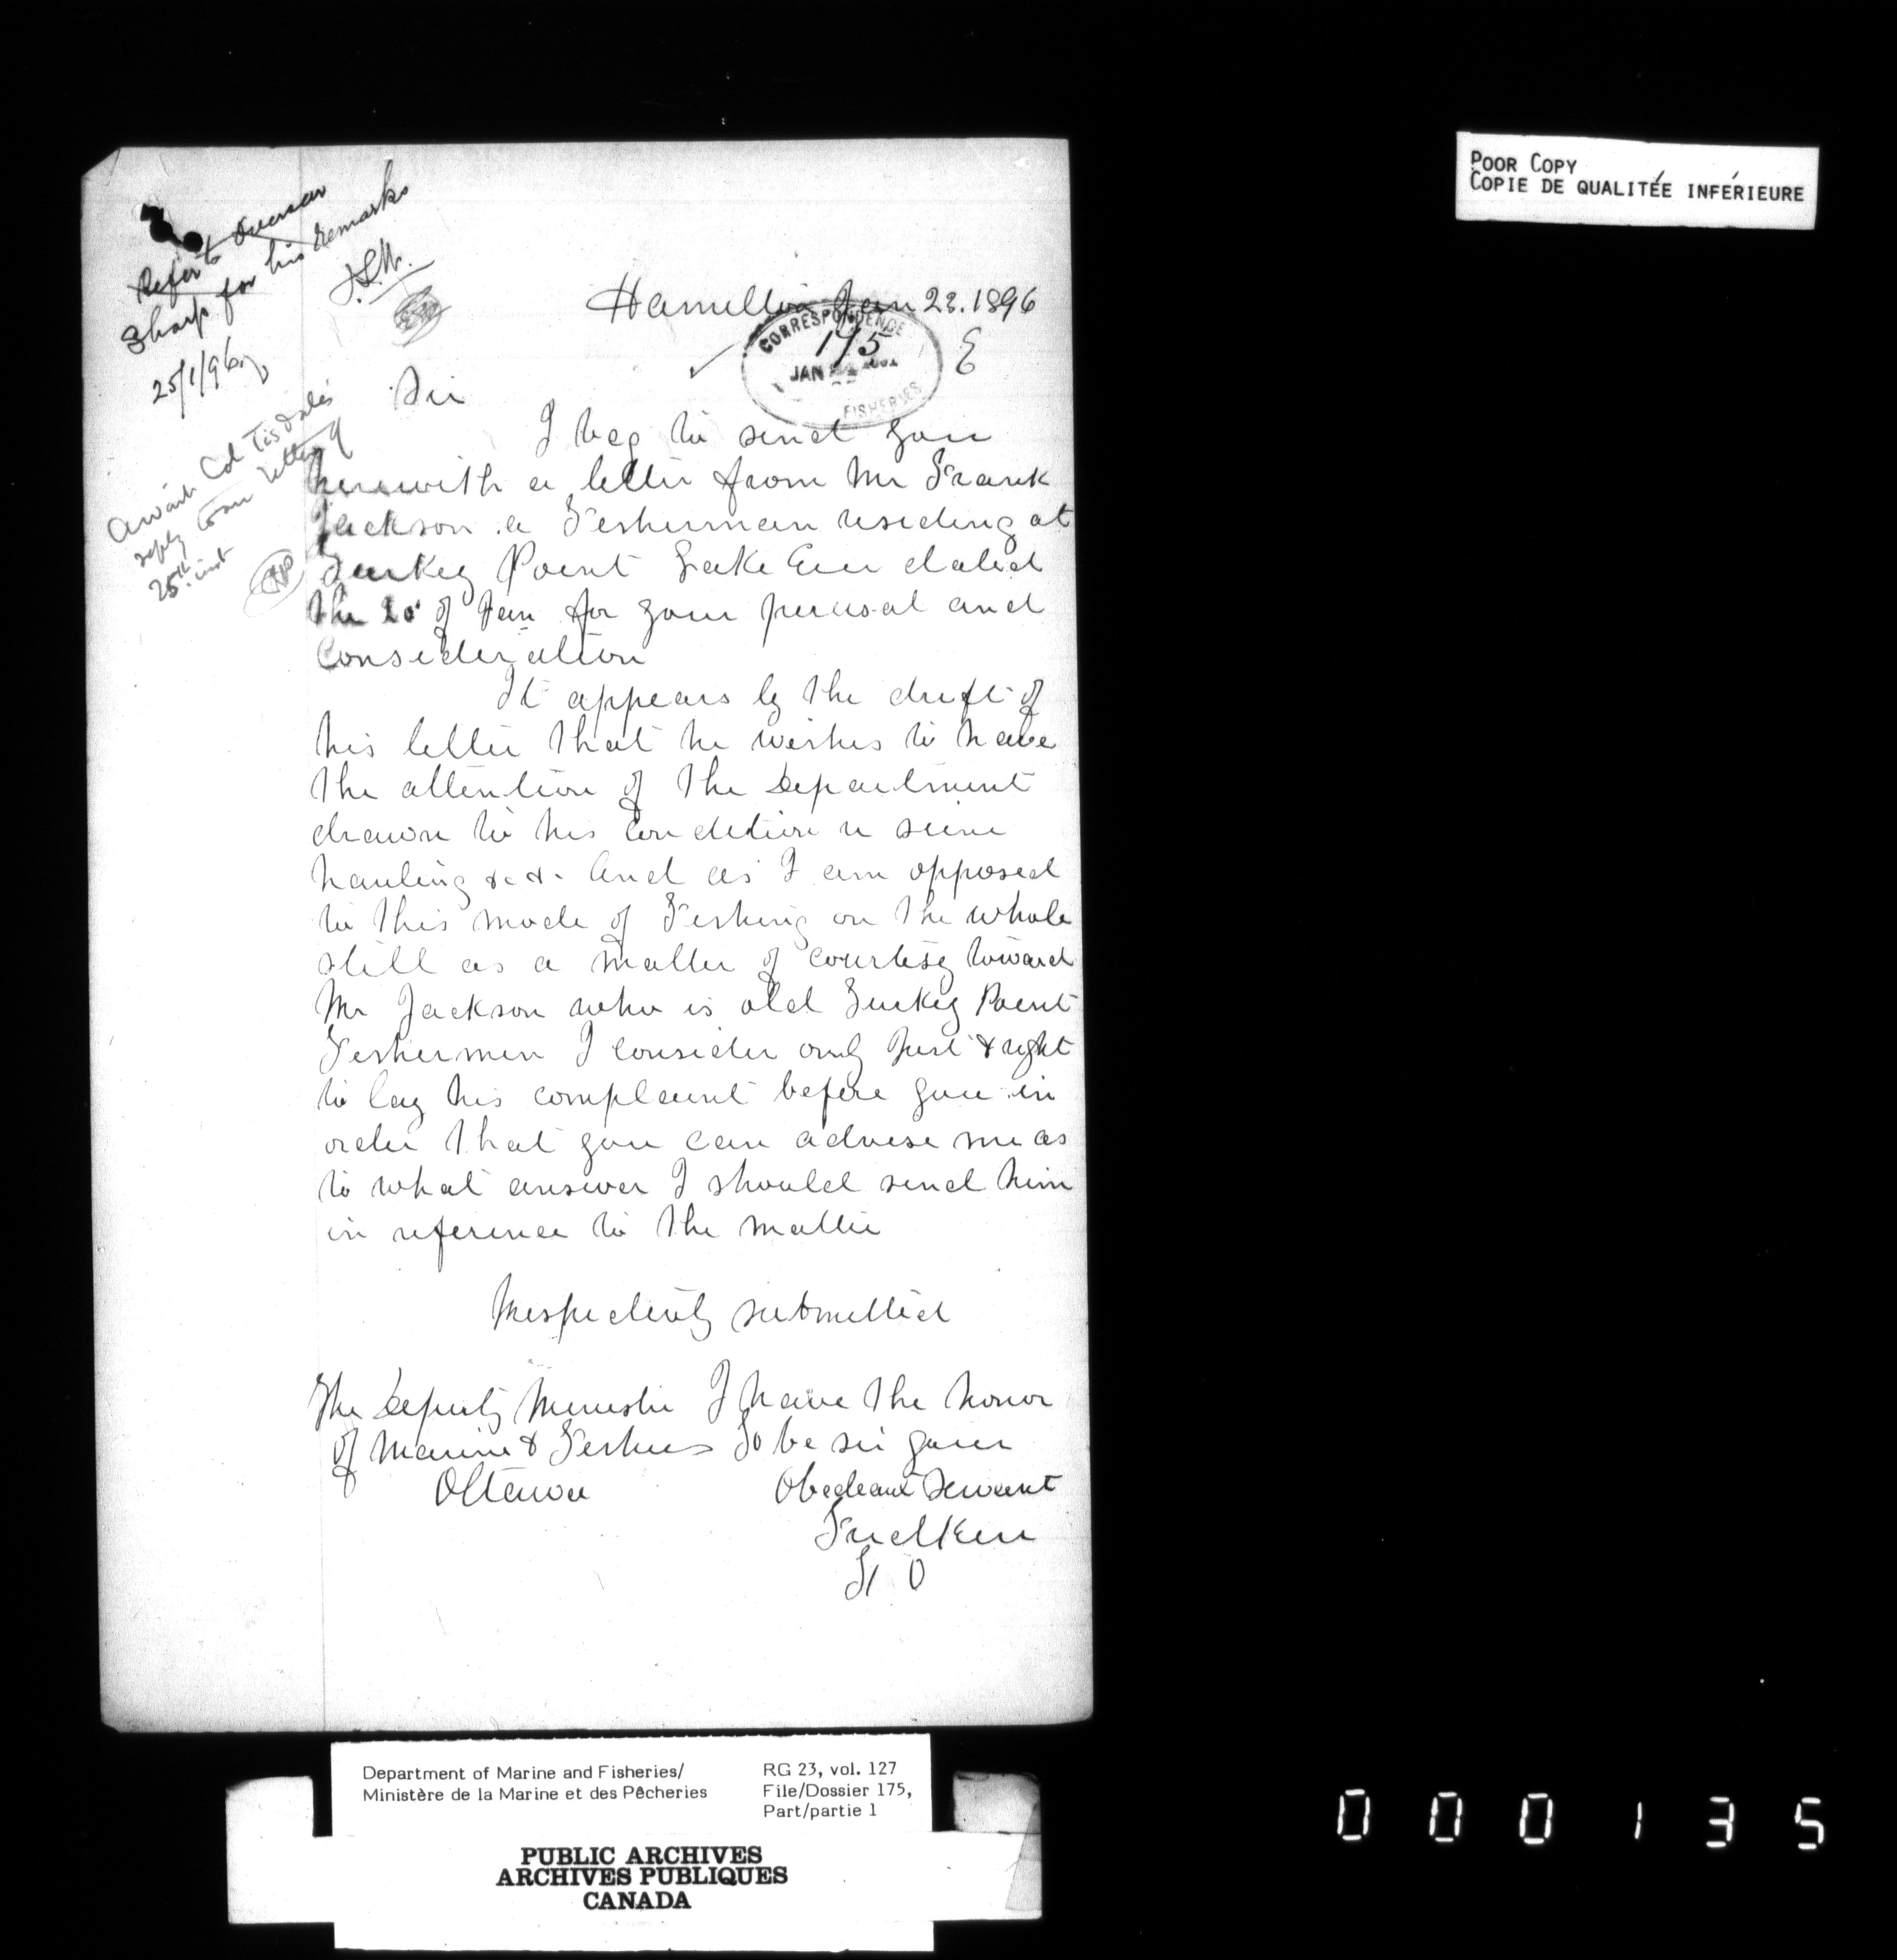 POOR COPY
COPIE DE QUALITÉE INFÉRIEURE
Refer to Overseer
Sharp for his remarks
25/1/96
Await Col Tisdale's
reply to our letter of
25th inst
Hamilton Jan 23. 1896
CORRESPONDENCE
175
JAN
FISHERIES
E
Sir
I beg to send you
herewith a letter from Mr Frank
Jackson a Fisherman residing at
Turkey Point Lake Erie dated
the 20 of Jan for your perusal and
Consideration
It appears by the drift of
his letter that he wishes to have
the attention of the Department
drawn to his Condition in seine
hauling &c &. And as I am opposed
to this mode of Fishing on the whole
still as a matter of courtesy toward
Mr Jackson who is old Turkey Point
Fishermen I consider only Just & right
to lay his complaint before you in
order that you can advise me as
to what answer I should send him
in reference to the matter
Respectively submitted
The Deputy Minister I have the honor
of Marine & Fisheries To be sir your
Ottawa Obedeant Servant
Fred Kerr
F O
Department of Marine and Fisheries/
Ministère de la Marine et des Pêcheries
RG 23, vol. 127
File/Dossier 175,
Part/partie 1
PUBLIC ARCHIVES
ARCHIVES PUBLIQUES
CANADA
000135